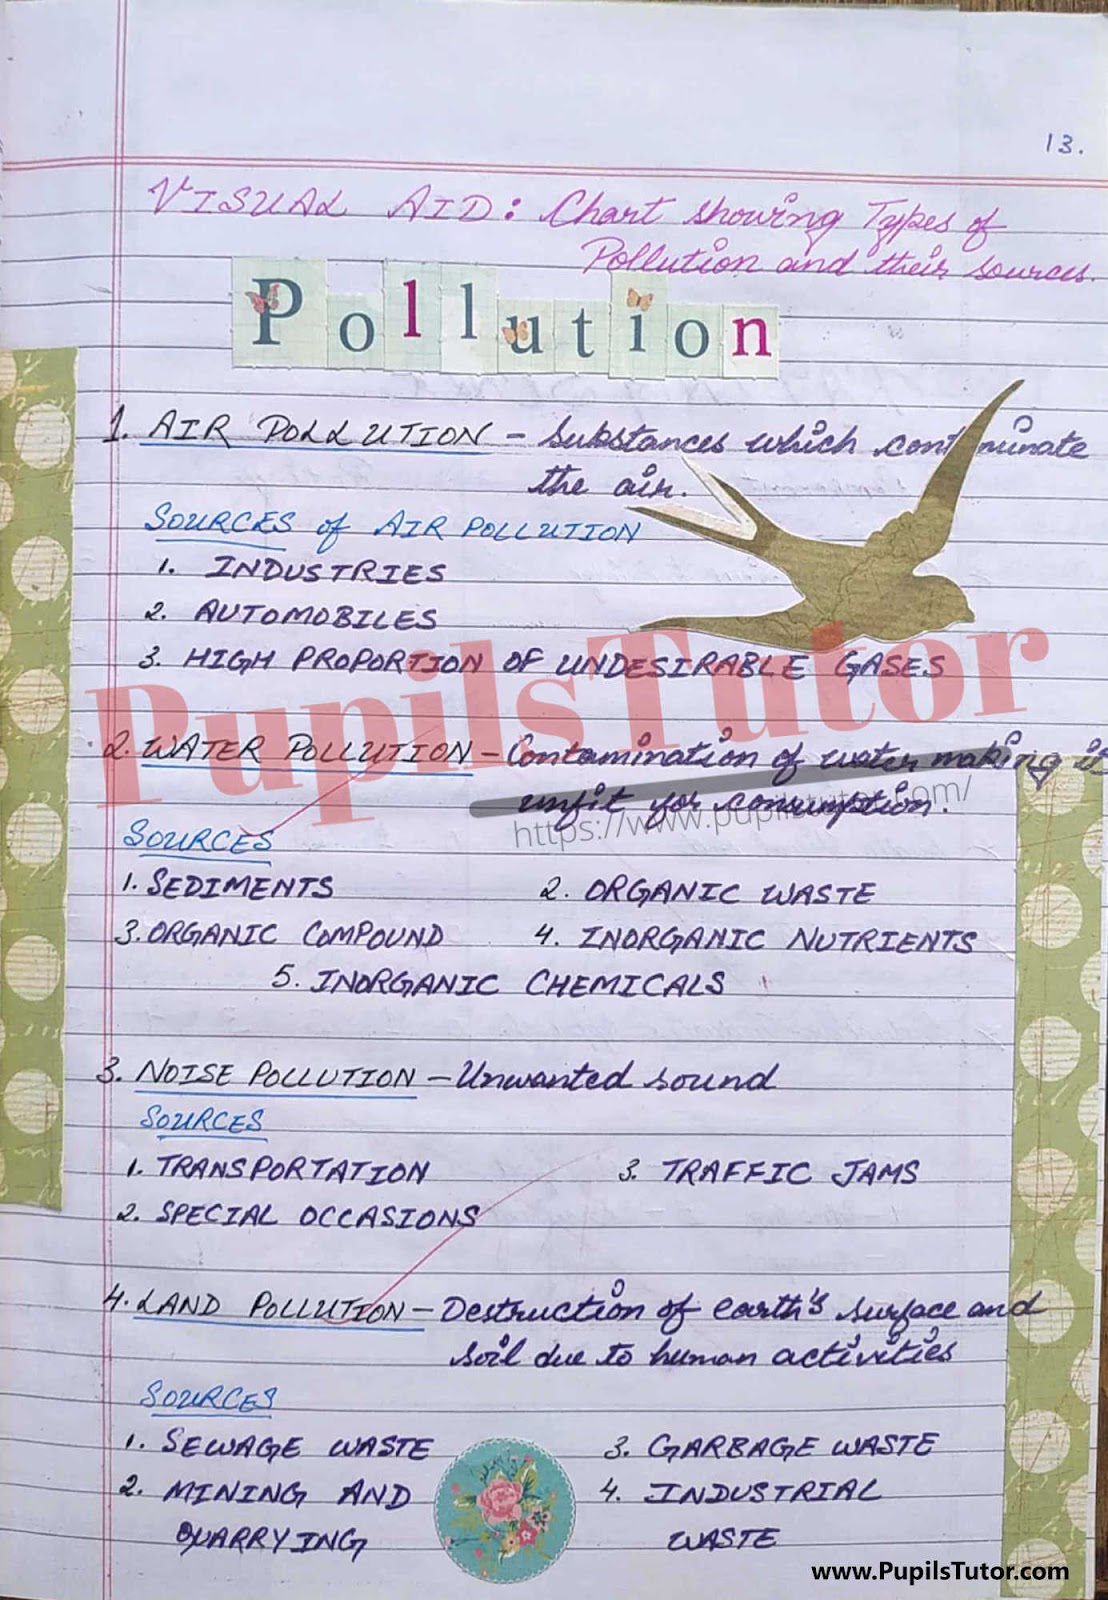 13.
VISUAL AID: Chart showing Types of
Pollution and their sources.
Pollution
1. AIR POLLUTION - Substances which contminate
the air.
SOURCES of AIR POLLUTION
1. INDUSTRIES
2. AUTOMOBILES
3. HIGH PROPORTION OF UNDESIRABLE GASES
PupilsTutor
2. WATER POLLUTION - Contamination of water making it
unfit for consumption.
https://www.pupilstutor.com/
SOURCES
1. SEDIMENTS 2. ORGANIC WASTE
3. ORGANIC COMPOUND 4. INORGANIC NUTRIENTS
5. INORGANIC CHEMICALS
3. NOISE POLLUTION - Unwanted sound
SOURCES
1. TRANSPORTATION 3. TRAFFIC JAMS
2. SPECIAL OCCASIONS
4. LAND POLLUTION - Destruction of earth's surface and
soil due to human activities
SOURCES
1. SEWAGE WASTE 3. GARBAGE WASTE
2. MINING AND 4. INDUSTRIAL
QUARRYING WASTE
www.PupilsTutor.com